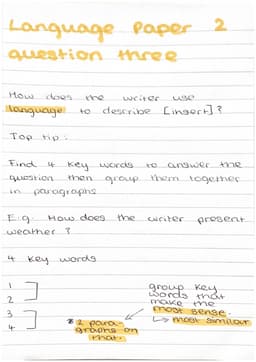 Language Paper 2
question three
How does the writer use
language to describe [insert]?
Top tip:
Find 4 key words to answer the
question then group them together
in paragraphs
E.g. How does the writer present
weather?
4 key words
1
2
3
4
group key
words that
make the
most sense.
↳ most similar
* 2 para-
graphs on
that.